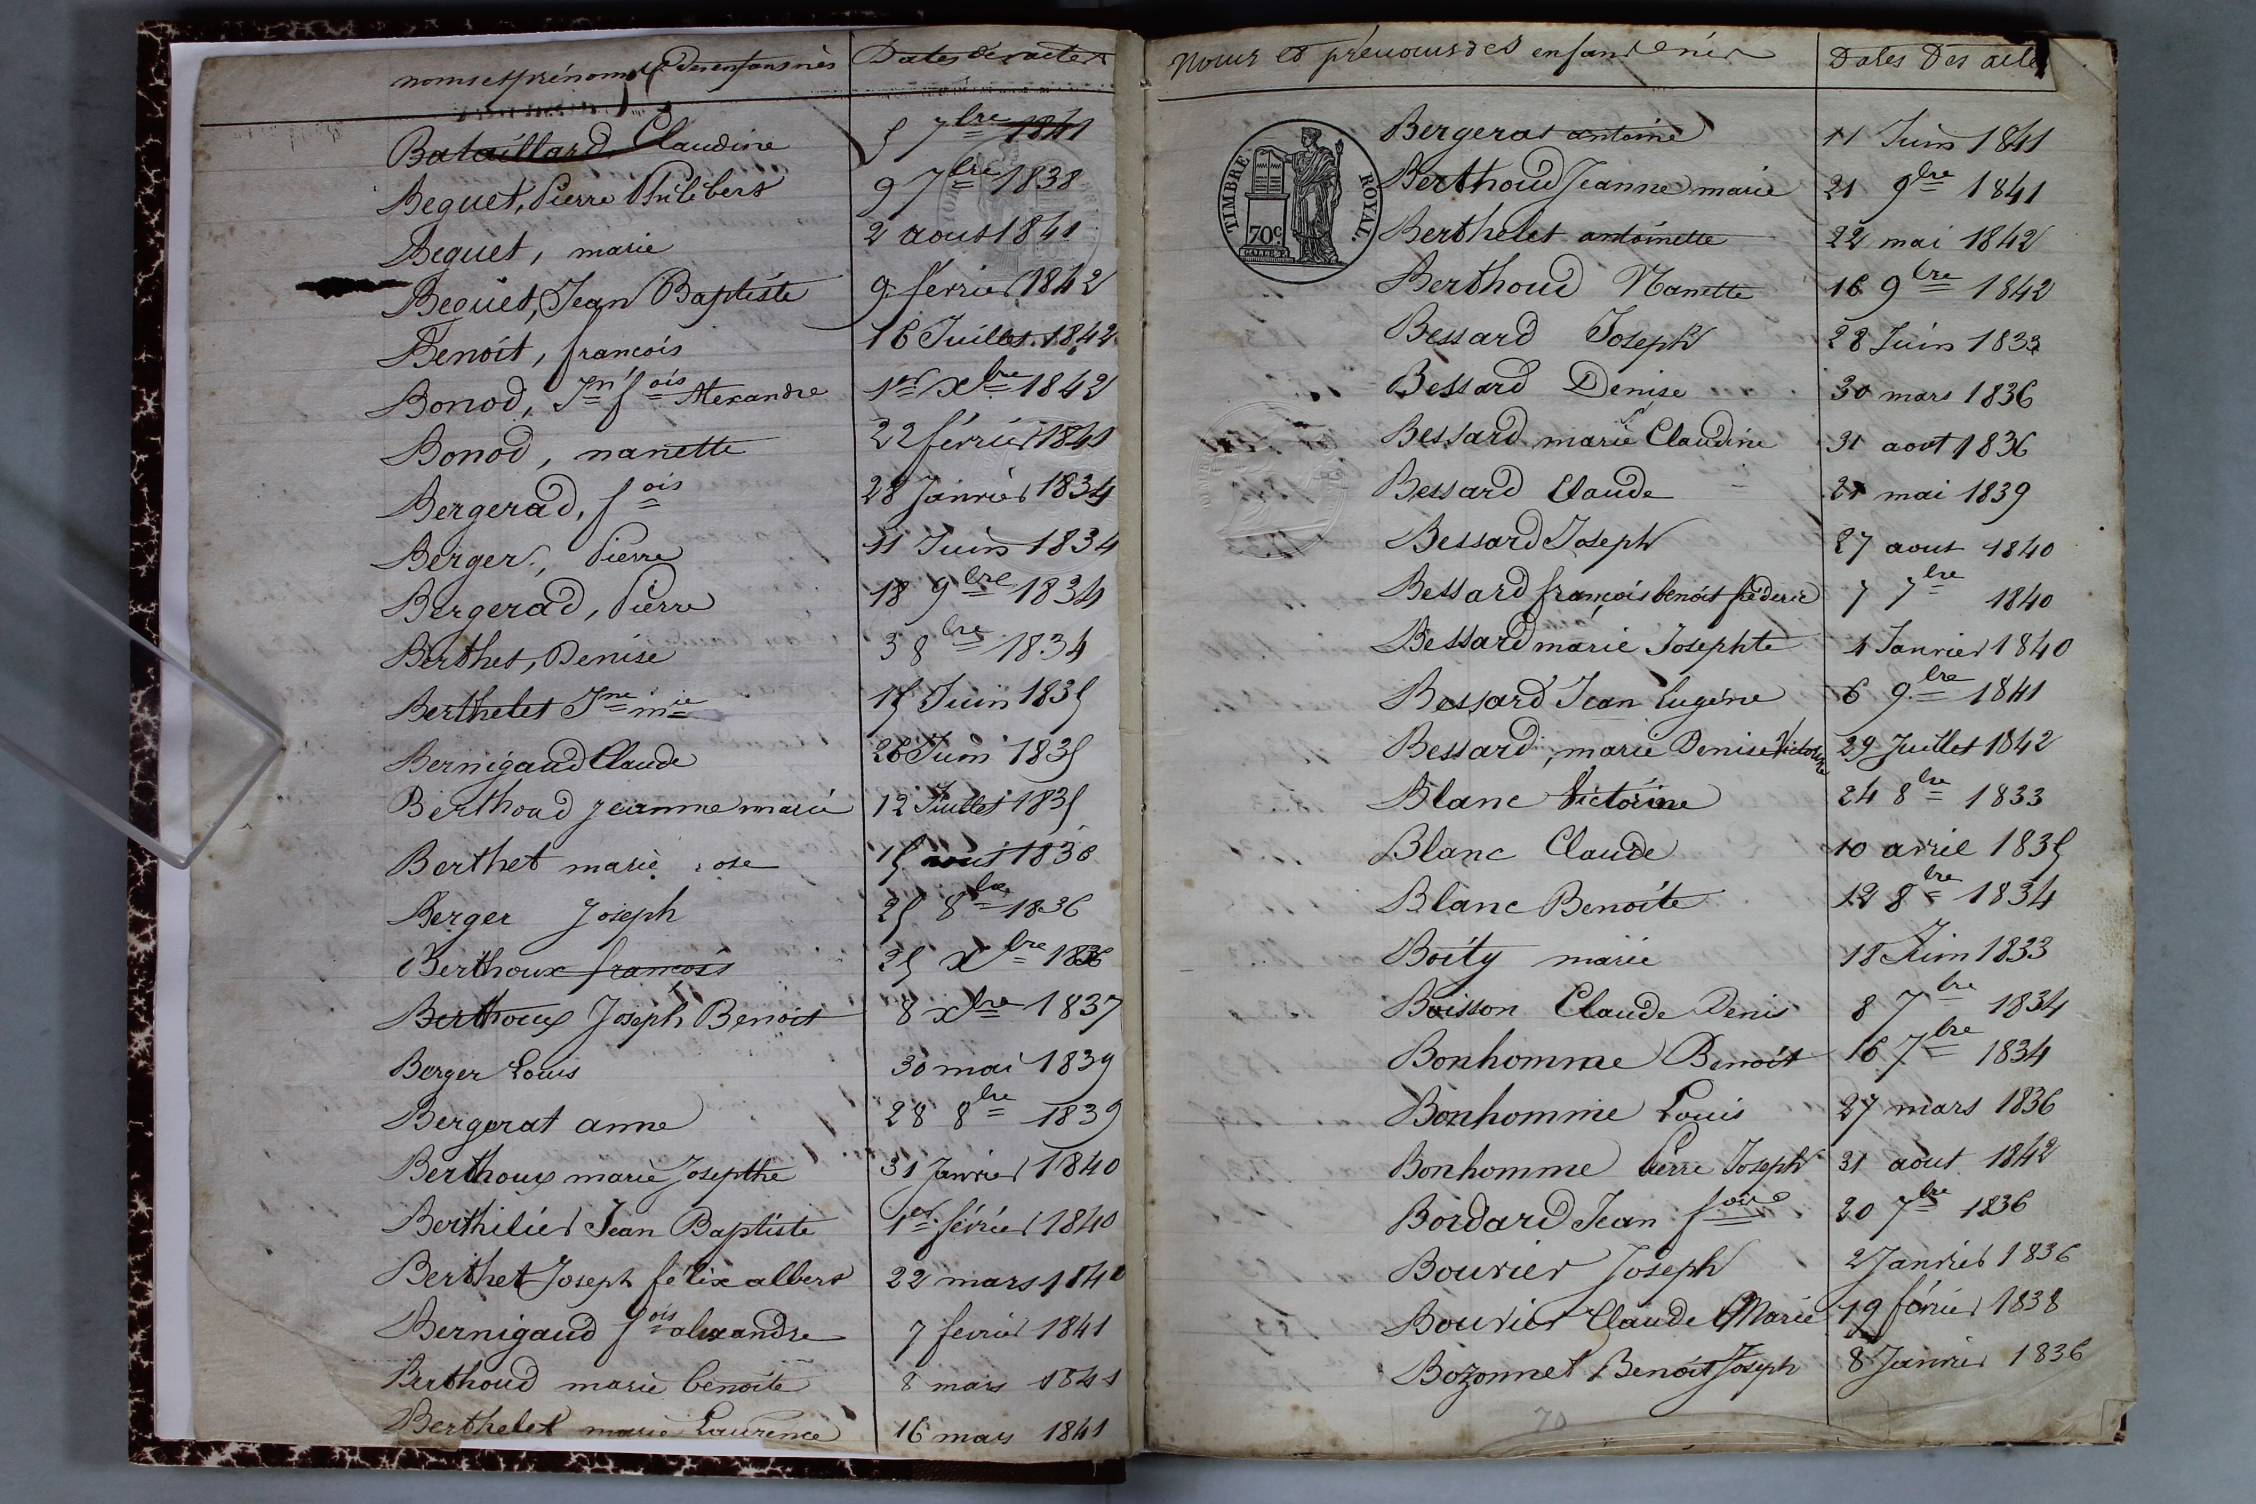 noms et prénoms des enfans nés Dates des actes
Bataillard Claudine 5 7bre 1841
Bequet, Pierre Philibert 9 7bre 1838
Bequet, marie 2 aout 1841
Bequet, Jean Baptiste 9 février 1842
Benoit, francois 16 Juillet 1842
Bonod, Jn fois Alexandre 1er Xbre 1842
Bonod, nanette 22 février 1841
Bergerad, fois 28 Janvier 1834
Berger, Pierre 11 Juin 1834
Bergerad, Pierre 18 9bre 1834
Berthet, Denise 3 8bre 1834
Berthelet Jne mie 15 Juin 1835
Bernigaud Claude 26 Juin 1835
Berthoud jeanne marie 12 Juillet 1835
Berthet marie rose 15 aout 1836
Berger Joseph 25 8bre 1836
Berthoux françois 25 Xbre 1836
Berthoux Joseph Benoit 8 xbre 1837
Berger Louis 30 mai 1839
Bergerat anne 28 8bre 1839
Berthoux marie Josepthe 31 Janvier 1840
Berthilier Jean Baptiste 1er février 1840
Berthet Joseph félix albert 22 mars 1840
Bernigaud fois alexandre 7 fevrier 1841
Berthoud marie benoite 8 mars 1841
Berthelet marie Laurence 16 mars 1841
Noms et prénoms des enfans nés Dates Des actes
TIMBRE ROYAL.
70c
Bergerat antoine 11 Juin 1841
Berthoud Jeanne marie 21 9bre 1841
Berthelet antoinette 22 mai 1842
Berthoud Nanette 16 9bre 1842
Bessard Joseph 28 Juin 1833
Bessard Denise 30 mars 1836
Bessard marie Claudine 31 aout 1836
Bessard Claude 21 mai 1839
Bessard Joseph 27 aout 1840
Bessard françois benoit fréderic 7 7bre 1840
Bessard marie Josephte 1 Janvier 1840
Bessard Jean Eugéne 6 9bre 1841
Bessard, marie Denise Victorine 29 Juillet 1842
Blanc Victorine 24 8bre 1833
Blanc Claude 10 avril 1835
Blanc Benoite 12 8bre 1834
Boity marie 18 Juin 1833
Boisson Claude Denis 8 7bre 1834
Bonhomme Benoit 16 7bre 1834
Bonhomme Louis 27 mars 1836
Bonhomme Pierre Joseph 31 aout 1842
Bordard Jean fois 20 7bre 1836
Bouvier Joseph 2 Janvier 1836
Bouvier Claude Marie 19 février 1838
Bozonnet Benoit Joseph 8 Janvier 1836
70